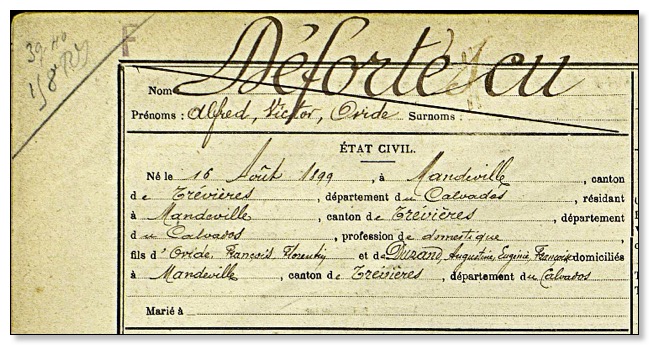 F
Nom Défortescu
Prénoms : Alfred, Victor, Ovide Surnoms :
ÉTAT CIVIL.
Né le 16 Août 1899, à Mandeville, canton
de Trévières, département du Calvados, résidant
à Mandeville, canton de Trévières, département
du Calvados, profession de domestique,
fils d'Ovide, François, Florentin et de Durand, Augustine, Eugénie, Françoise domiciliés
à Mandeville, canton de Trévières, département du Calvados
Marié à